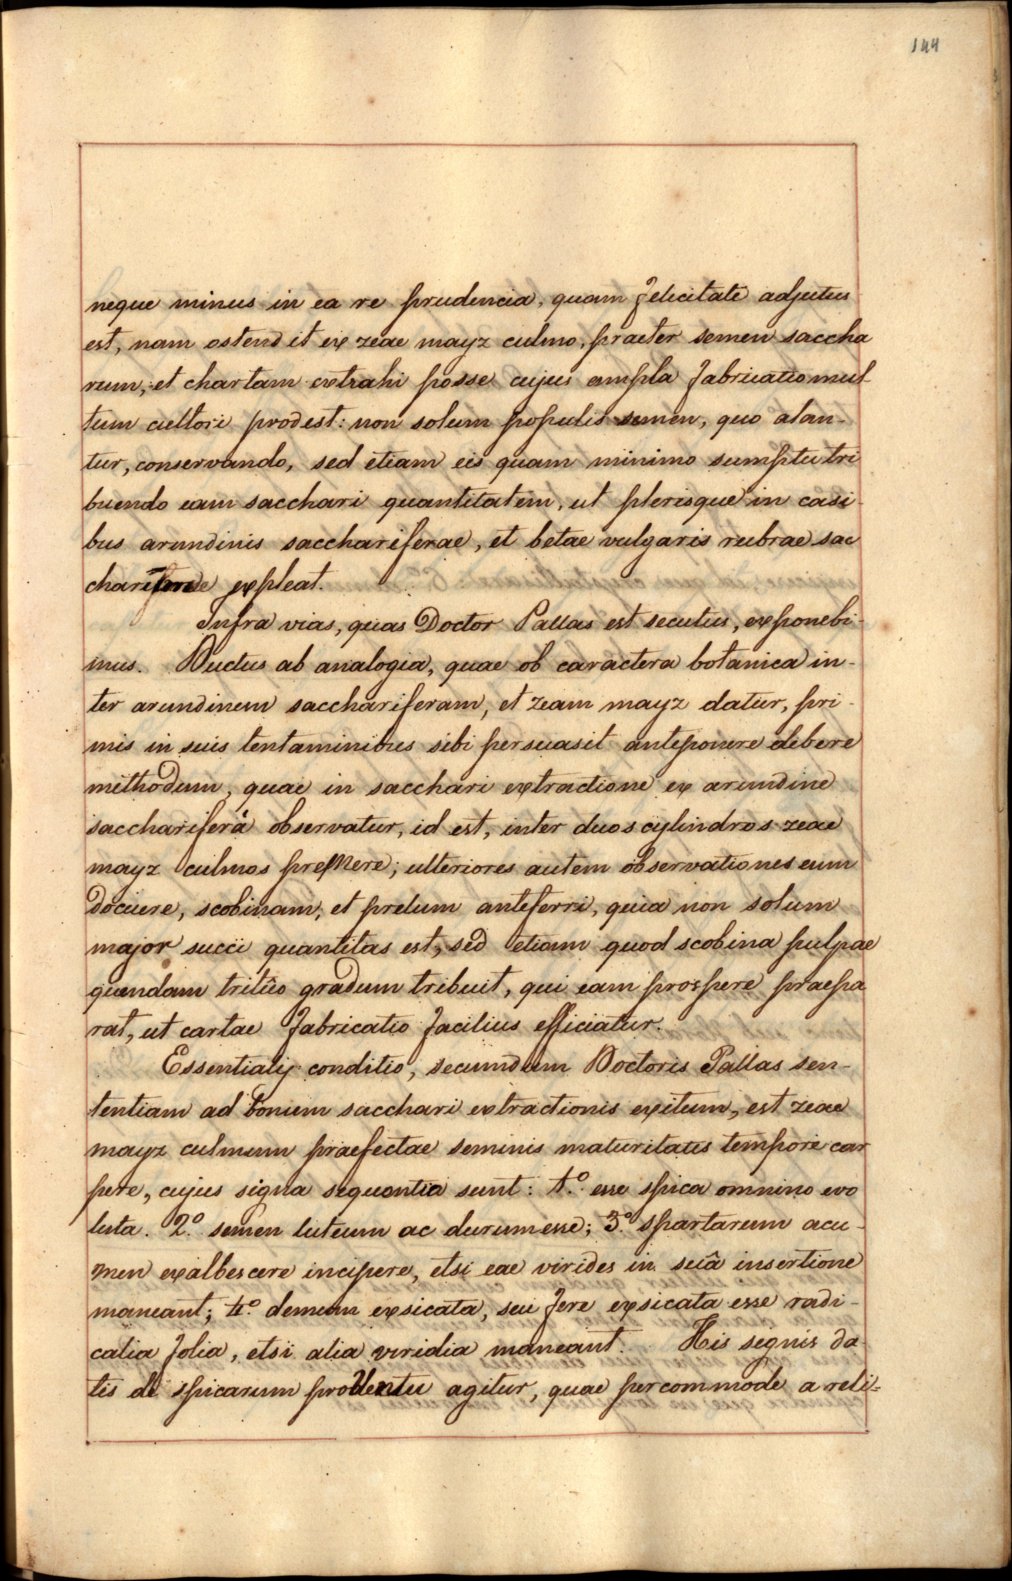 144
neque minus in ea re prudencia, quam felicitate adjutus
est, nam ostendit ex zeae mayz culmo, praeter semen saccha
rum, et chartam extrahi posse cujus ampla fabricatio mul-
tum cultori prodest: non solum populis semen, quo alan-
tur, conservando, sed etiam eis quam minimo sumptu tri
buendo eam sacchari quantitatem, ut plerisque in casi-
bus arundinis sacchariferae, et betae vulgaris rubrae sac
chariferae expleat.
Infra vias, quas Doctor Pallas est secutus, exponebi-
mus. Ductus ab analogia, quae ob caractera botanica in-
ter arundinem sacchariferam, et zeam mayz datur, pri-
mis in suis tentaminibus sibi persuasit anteponere debere
methodum, quae in sacchari extractione ex arundine
sacchariferâ observatur, id est, inter duos cylindros zeae
mayz culmos premere; ulteriores autem observationes eum
docuere, scobinam, et prelum anteferri, quia non solum
major succi quantitas est, sed etiam quod scobina pulpae
quendam tritûo gradum tribuit, qui eam prospere praepa
rat, ut cartae fabricatio facilius efficiatur.
Essentialis conditio, secundum Doctoris Pallas sen-
tentiam ad bonum sacchari extractionis exitum, est zeae
mayz culmum praefectae seminis maturitatis tempore car
pere, cujus signa sequontia sunt: 1.º esse spica omnino evo
luta. 2.º semen luteum ac durum esse; 3.º spartarum acu-
men exalbescere incipere, etsi eae virides in suâ insertione
maneant; 4.º demum exsicata, seu fere exsicata esse radi-
calia folia, etsi alia viridia maneant. His segnis da-
tis de spicarum proventu agitur, quae percommode a reli-